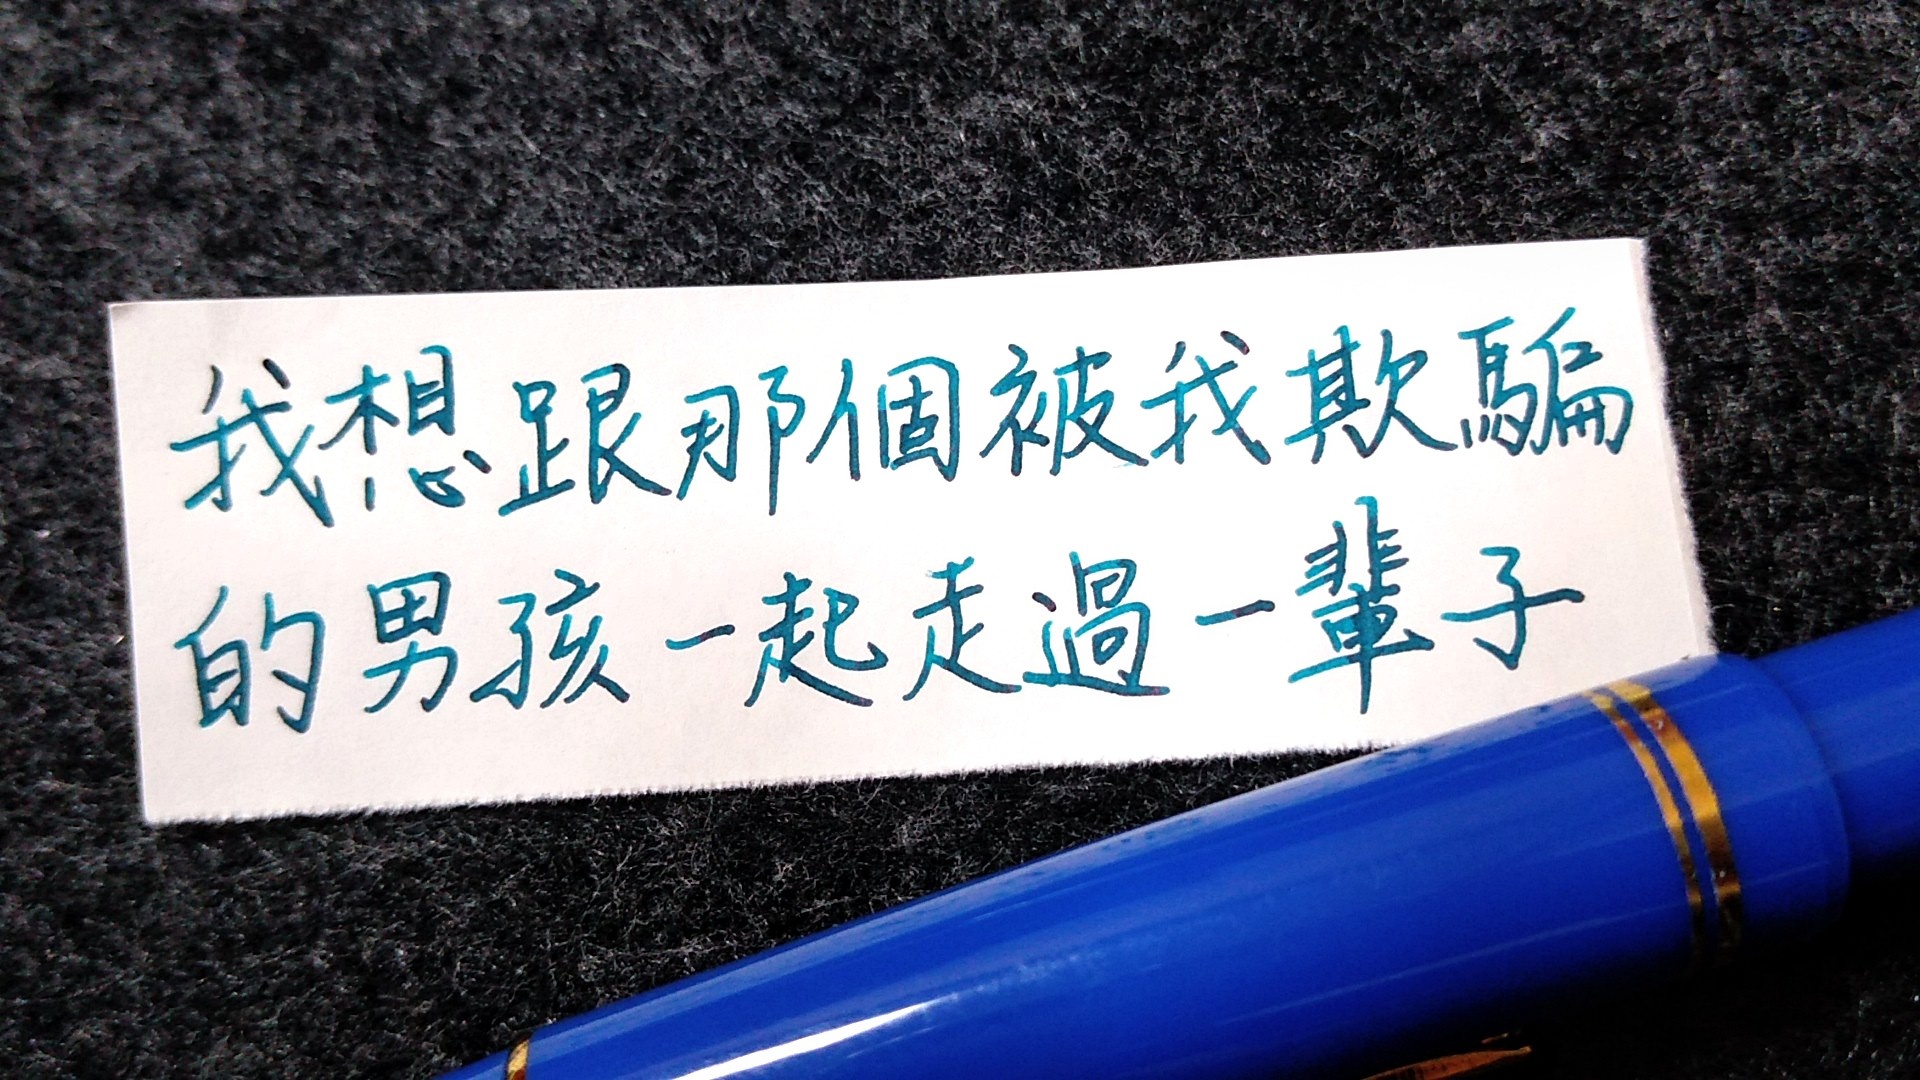 我想跟那個被我欺騙
的男孩一起走過一輩子